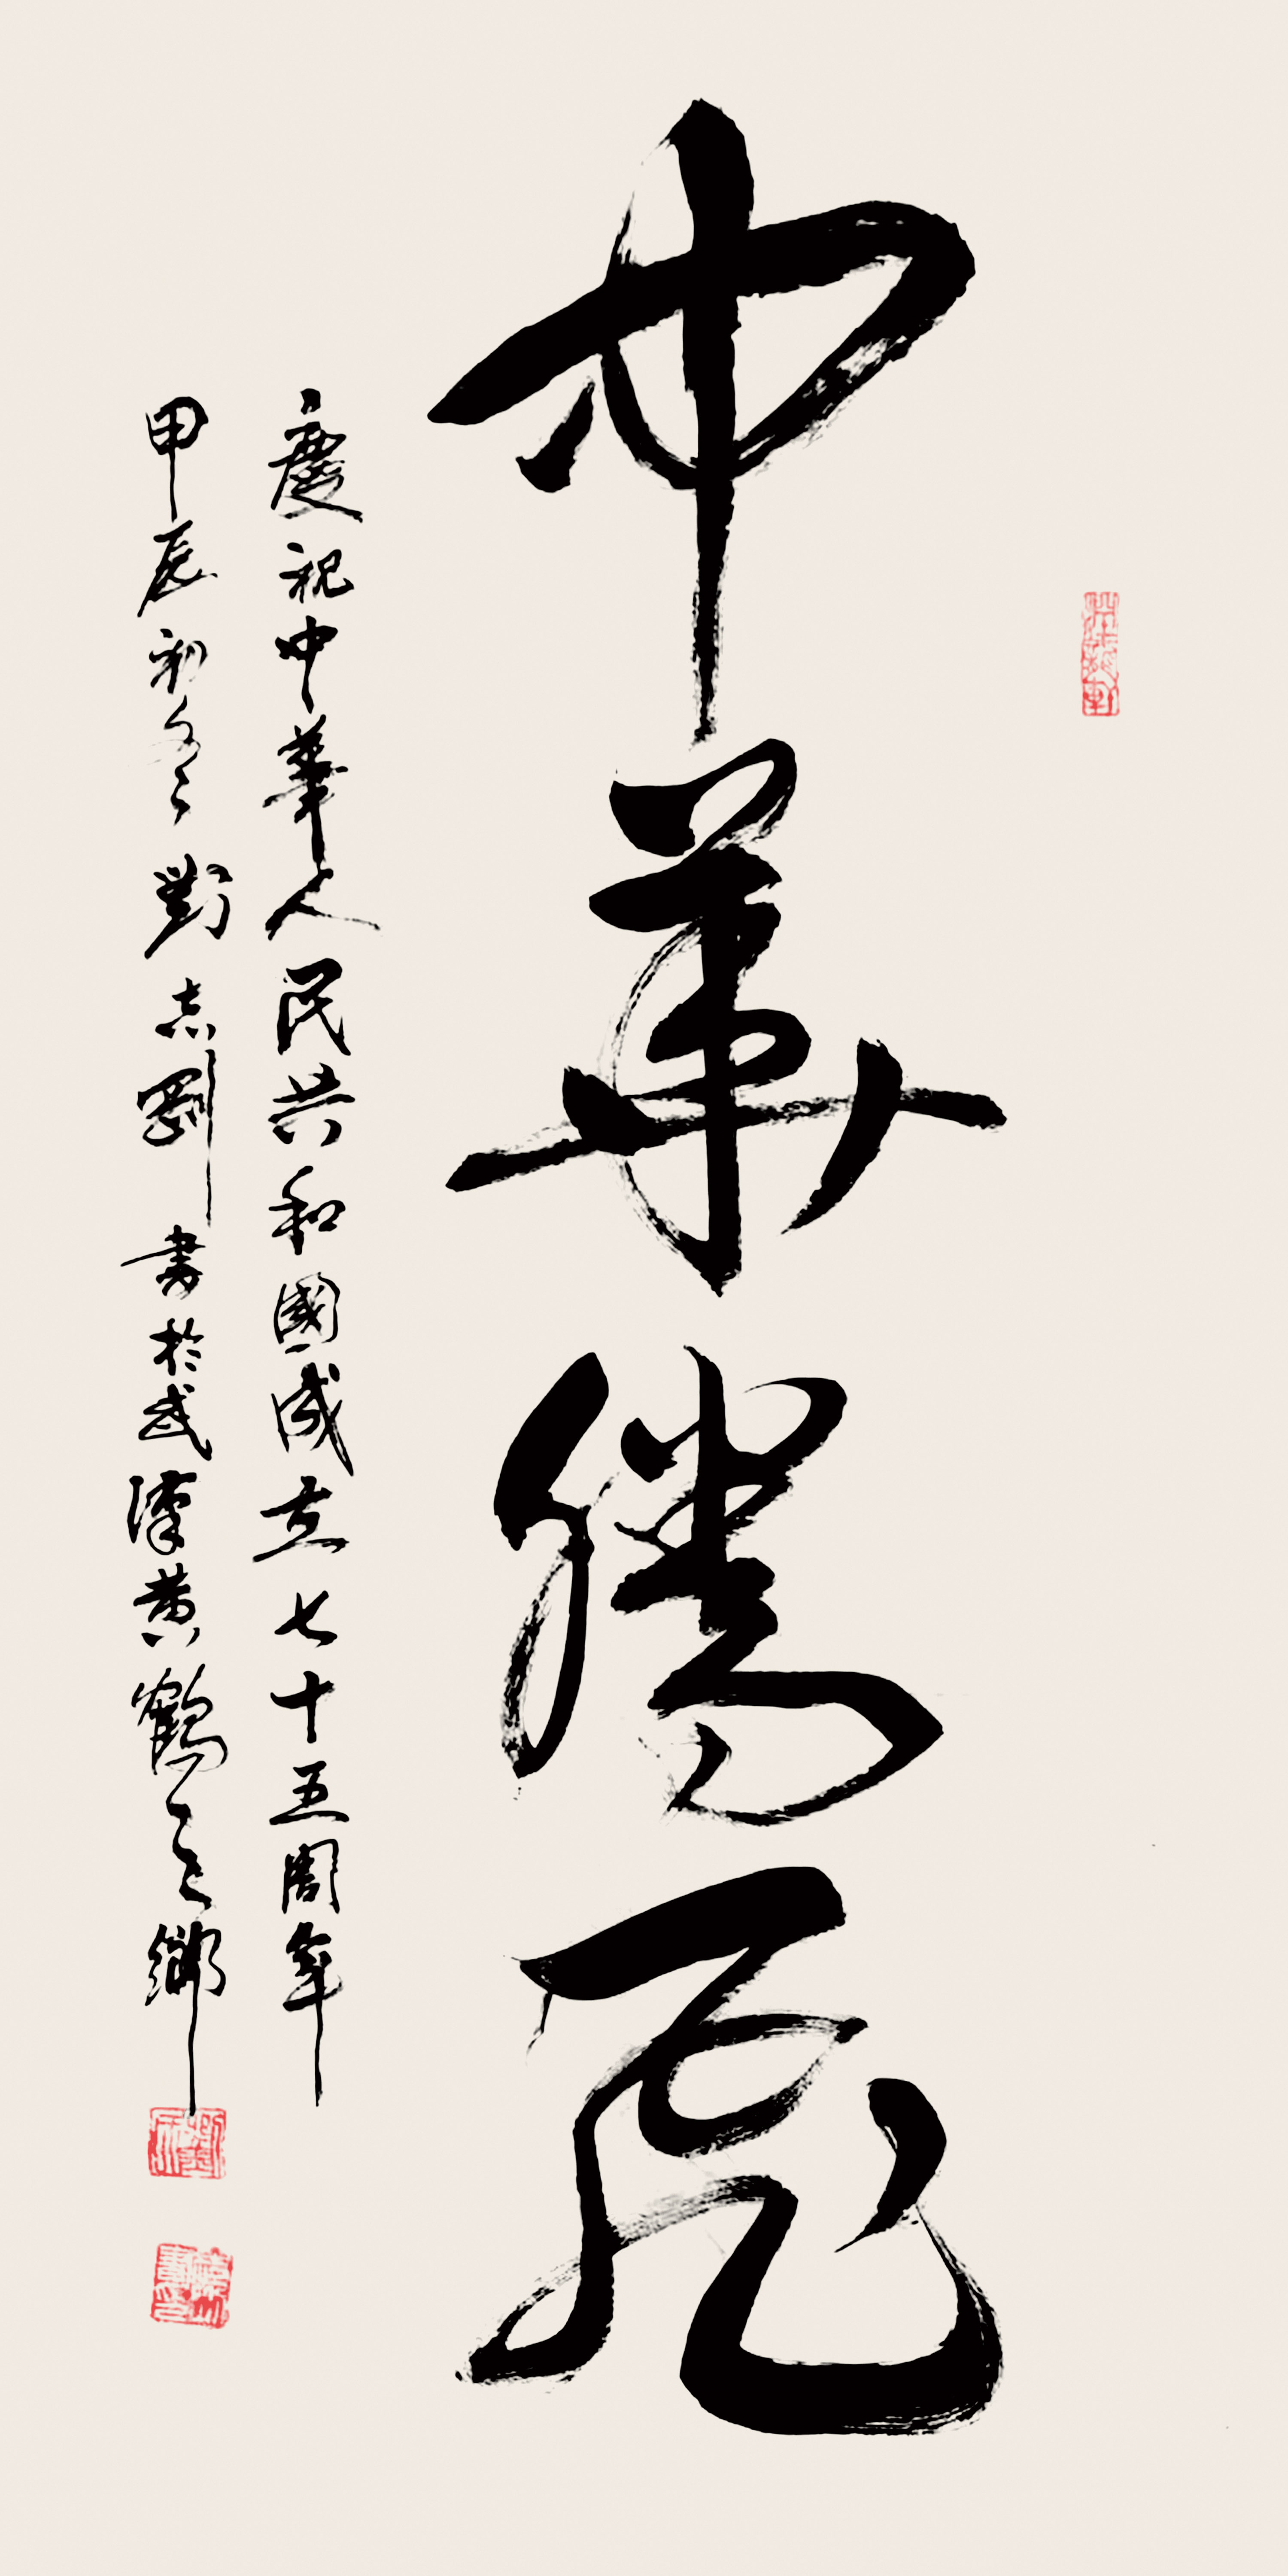 中華騰飛
慶祝中華人民共和國成立七十五周年
甲辰初冬劉志剛書於武漢黃鶴之鄉